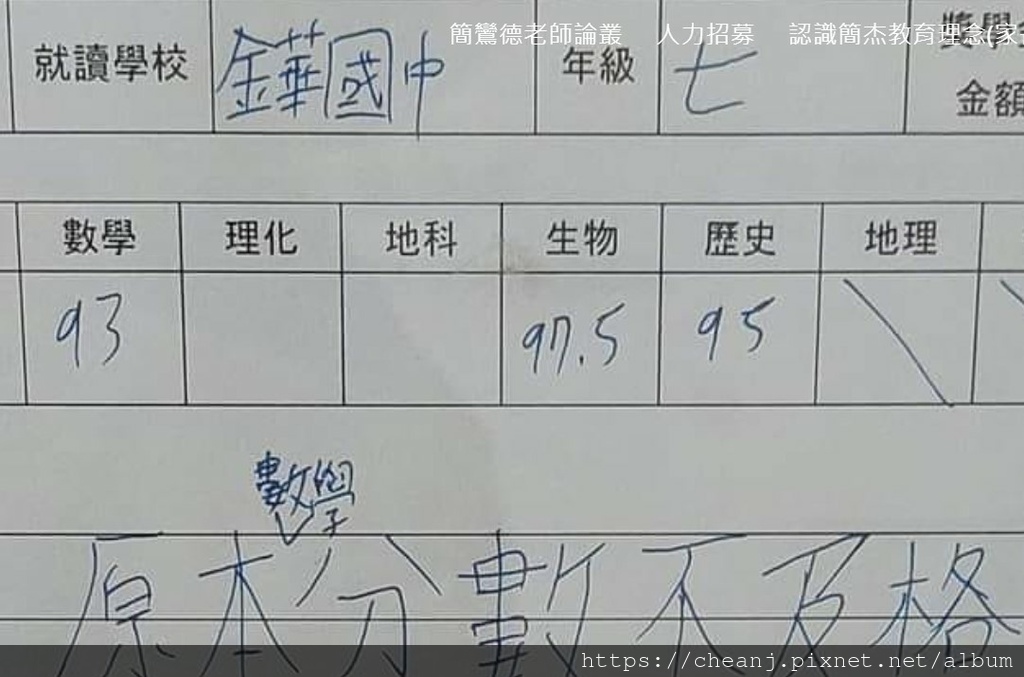 簡鸞德老師論叢 人力招募 認識簡杰教育理念(家
就讀學校 金華國中 年級 七 獎學
金額
數學 理化 地科 生物 歷史 地理
93 97.5 95
數學
原本分數不及格
https://cheanj.pixnet.net/album